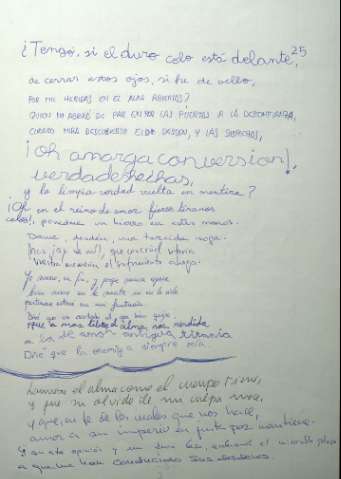 25
¿Tengo, si el duro celo está delante,
de cerrar estos ojos, si he de vello,
por mil heridas en el alma abiertas?
Quien no abre de par en par las puertas a la desconfianza,
cuando mira descubierto el desdén, y las sospechas,
¡oh amarga conversión!,
verdades hechas,
y la limpia verdad vuelta en mentira?
¡Oh, en el reino de amor fieros tiranos
celos!, ponedme un hierro en estas manos.
Dame, desdén, una torcida soga.
Mas ¡ay de mí!, que con cruel vitoria
vuestra memoria el sufrimiento ahoga.
Yo muero, en fin, y porque nunca espere
buen suceso en la muerte ni en la vida
pertinaz estaré en mi fantasía.
Diré que va acertado el que bien quiere,
que es más libre el alma más rendida
a la de amor antigua tiranía
Diré que la enemiga siempre mía
hermosa el alma como el cuerpo tiene,
y que su olvido de mi culpa nace,
y que, en fe de los males que nos hace,
amor a su imperio en justa paz mantiene.
Y con esta opinión y un duro lazo, acelerando el miserable plazo
a que me han conducido sus desdenes.